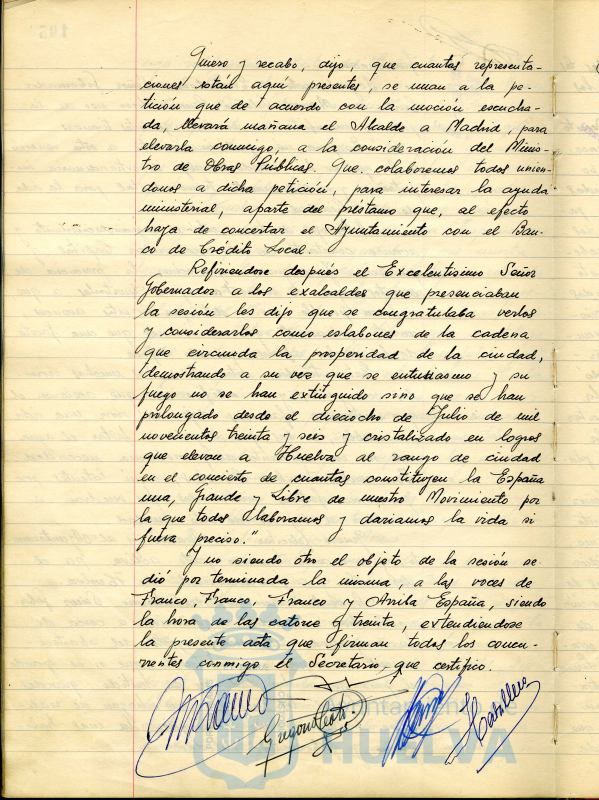 Quiero y recabo, dijo, que cuantas representa-
ciones están aquí presentes, se unan a la pe-
tición que de acuerdo con la moción escucha-
da, llevará mañana el Alcalde a Madrid, para
elevarla conmigo, a la consideración del Minis-
tro de Obras Públicas. Que colaboremos todos unien-
donos a dicha petición, para interesar la ayuda
ministerial, aparte del préstamo que, al efecto
haya de concertar el Ayuntamiento con el Ban-
co de Crédito Local.
Refiriendose después el Excelentísimo Señor
Gobernador a los exalcaldes que presenciaban
la sesión les dijo que se congratulaba verlos
y considerarlos como eslabones de la cadena
que circunda la prosperidad de la ciudad,
demostrando a su vez que se entusiasmo y su
fuego no se han extinguido sino que se han
prolongado desde el dieciocho de Julio de mil
novecientos treinta y seis y cristalizado en logros
que elevan a Huelva al rango de ciudad
en el concierto de cuantas constituyen la España
una, Grande y Libre de nuestro Movimiento por
la que todos laboramos y dariamos la vida si
fuera preciso."
Y no siendo otro el objeto de la sesión se
dió por terminada la misma, a las voces de
Franco, Franco, Franco y Arriba España, siendo
la hora de las catorce y treinta, extendiendose
la presente acta que firman todos los concu-
rrentes conmigo el Secretario, que certifico.
Caballero
Ayuntamiento de
HUELVA